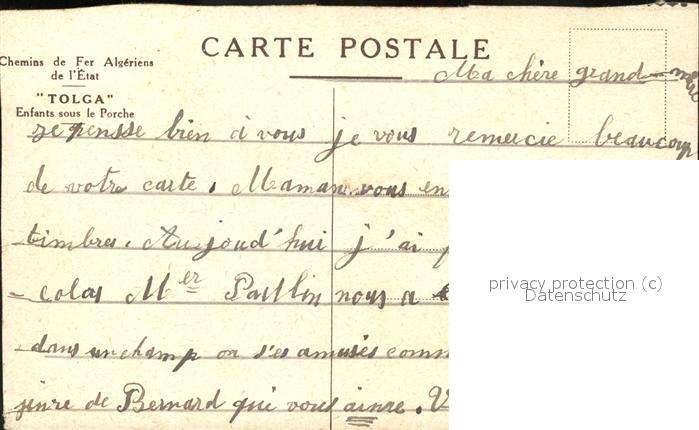 CARTE POSTALE
Chemins de Fer Algériens
de l'État
"TOLGA"
Enfants sous le Porche
Ma chère grand-mère
je pensse bien à vous je vous remercie beaucoup
de votre carte. Maman vous en
timbres. Aujoud'hui j'ai
colas Mer Paullin nous a
dans un champ on s'es amusés comm
de Bernard qui vous aime. V
privacy protection (c)
Datenschutz